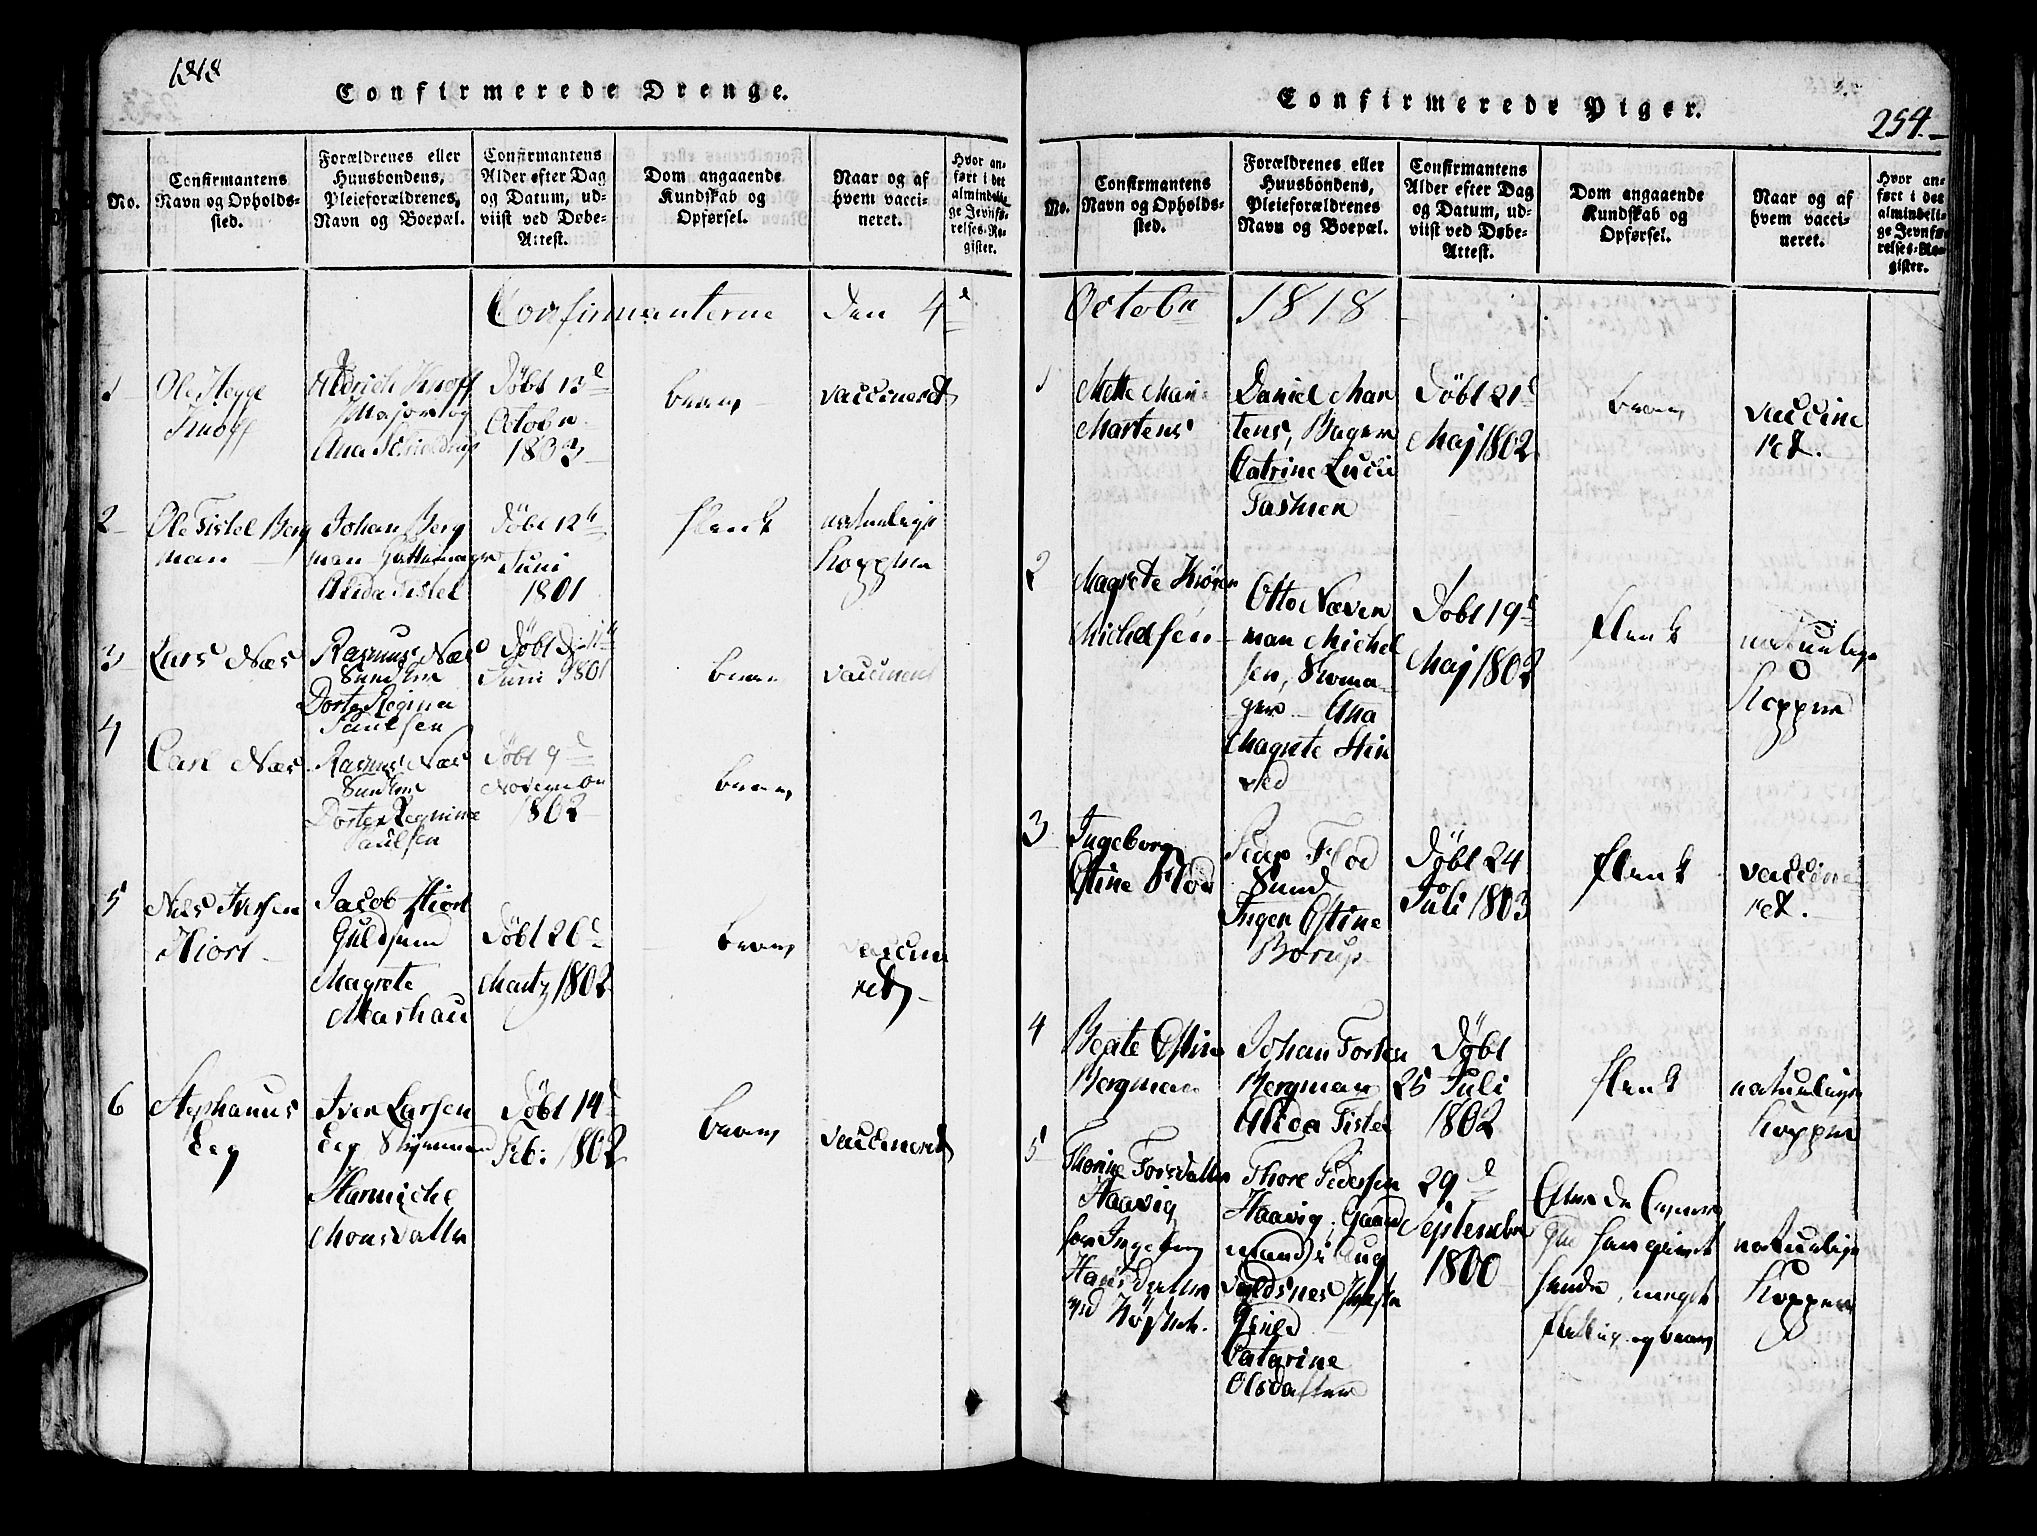 1818
Confirmerede Drenge.
No.
Confirmantens
Navn og Opholds-
sted.
Forældrenes eller
Huusbondens,
Pleieforældrenes,
Navn og Boepæl.
Confirmantens
Alder efter Dag
og Datum, ud-
viist ved Døbe-
Attest.
Dom angaaende
Kundskab og
Opførsel.
Naar og af
hvem vacci-
neret.
Hvor an-
ført i det
almindeli-
ge Jevnfø-
relses-Re-
gister.
Confirmanterne den 4de
1
Ole Hegge
Knoff
Didrich Knoff
Major og
Ana Schieldrup
Döbt 13de
October
1803
brav
vaccineret
2
Ole Tistel Berg
man
Johan Berg
man
Alida Tistel
Döbt 12te
Juni
1801
flenk
naturlige
Kopper
3
Lars Næs
Rasmus Næs
Dorte Regina
Paulsen
Döbt
Juni 1801
brav
vaccineret
4
Carl Næs
Rasmus Næs
Dorte Regina
Paulsen
Döbt 9de
November
1802
brav
5
Niels Iversen
Hiort
Jacob Hiort
Guldsmed
Magrete
Mashau
Döbt 20de
Martz 1802
brav
vaccine
ret
6
Stephanus
Eeg
Iver Larsen
Eeg Styrmand
Hanniche
Monsdatter
Döbt 14de
Feb: 1802
brav
vaccineret
Confirmerede Piger.
254.
No.
Confirmantens
Navn og Opholds-
sted.
Forældrenes eller
Huusbondens,
Pleieforældrenes
Navn og Boepæl.
Confirmantens
Alder efter Dag
og Datum, ud-
viist ved Døbe-
Attest.
Dom angaaende
Kundskab og
Opførsel.
Naar og af
hvem vacci-
neret.
Hvor an-
ført i det
almindeli-
ge Jevnfø-
relses-Re-
gister.
October 1818
1
Mette Mari
Martens
Daniel Mar
tens, Bager
Catrine Lucie
Tashien
Döbt 21de
Maj 1802
brav
vaccine
ret.
2
Magrete
Michelsen
Otto Neven
man Michel
sen, Skoma-
ger - Ana
Magrete Stin
ved
Döbt 19de
Maj 1802
flenk
naturlige
Kopper
3
Ingeborg
Stine Flod
Peder Flod
Sund
Inger Stine
Borup
Döbt 24
Juli 1803
flenk
vaccine
ret.
4
Beate Stine
Bergman
Johan Forten
Bergman
Alida Tistel
Döbt
25 Juli
1802
flenk
naturlige
Kopper
5
Thorine Torsdatter
Haavig
hos Ingeborg
Hansdatter
Thore Pedersen
Haavig, Gaard
mand i Aug
valdsnes
Gield
Catarine
Olsdatter
29de
September
1800
hende, meget
flittig og brav
naturlige
Kopper